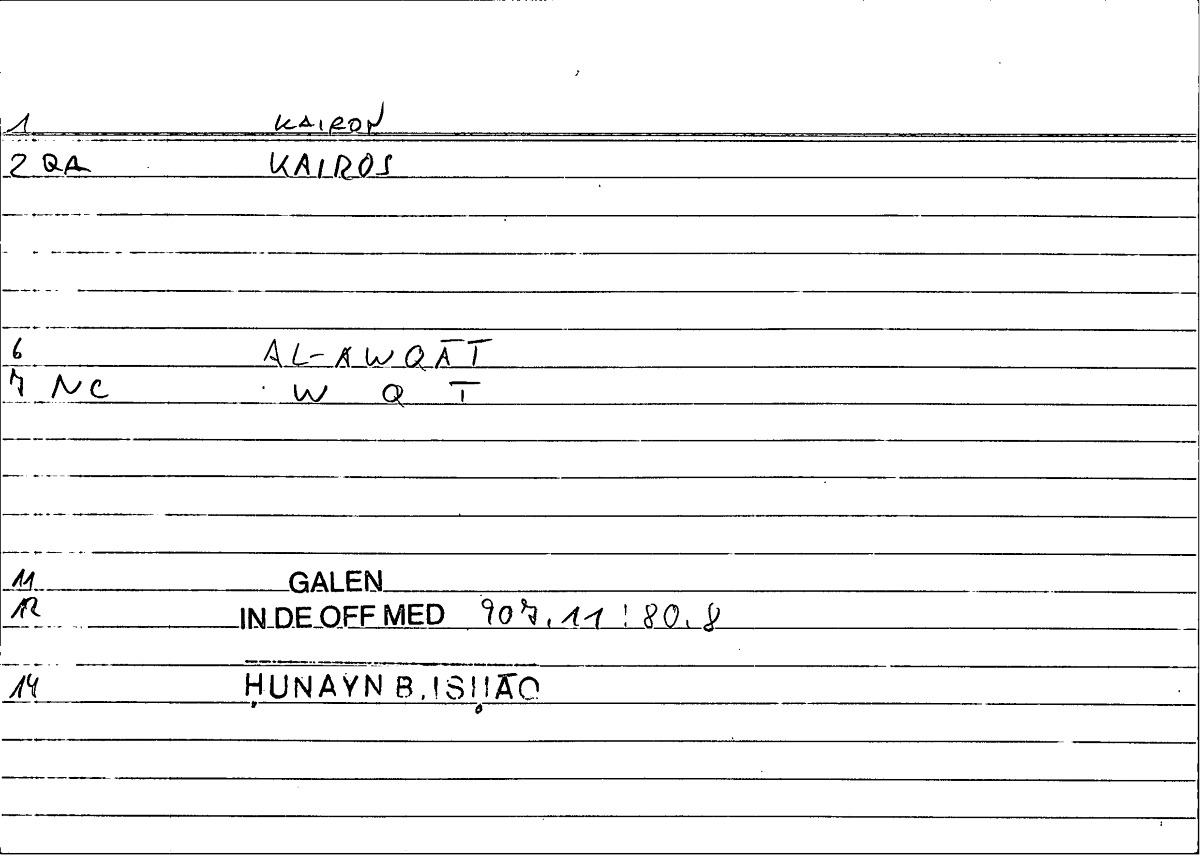 1 KAIRON
2 QA KAIROS
6 AL-AWQĀT
7 NC W Q T
11 GALEN
12 IN DE OFF MED 907.11 : 80.8
14 ḤUNAYN B. ISḤĀQ